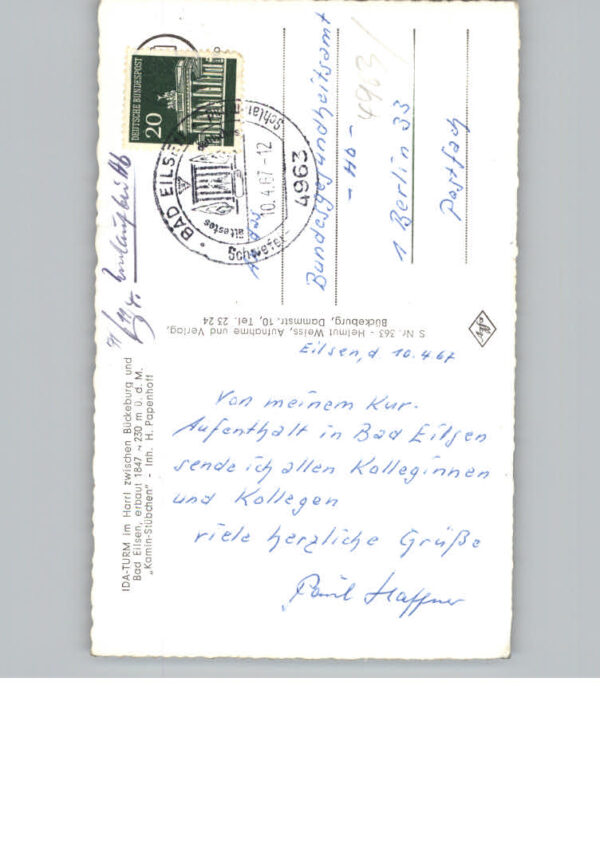 Eilsen, d 10.4.67
Von meinem Kur-
Aufenthalt in Bad Eilsen
sende ich allen Kolleginnen
und Kollegen
viele herzliche Grüße
Paul Haffner
An das
Bundesgesundheitsamt
- Ab -
4963/
1 Berlin 33
Postfach
DEUTSCHE BUNDESPOST
20
BAD EILSEN
4963
10.4.67-12
ältestes
IDA-TURM im Harrl zwischen Bückeburg und
Bad Eilsen, erbaut 1847 ~ 230 m ü. d. M.
„Kamin-Stübchen" - Inh. H. Papenhoff
S Nr. 363 - Helmut Weiss, Aufnahme und Verlag,
Bückeburg, Dammstr. 10, Tel. 23 24
Agfa